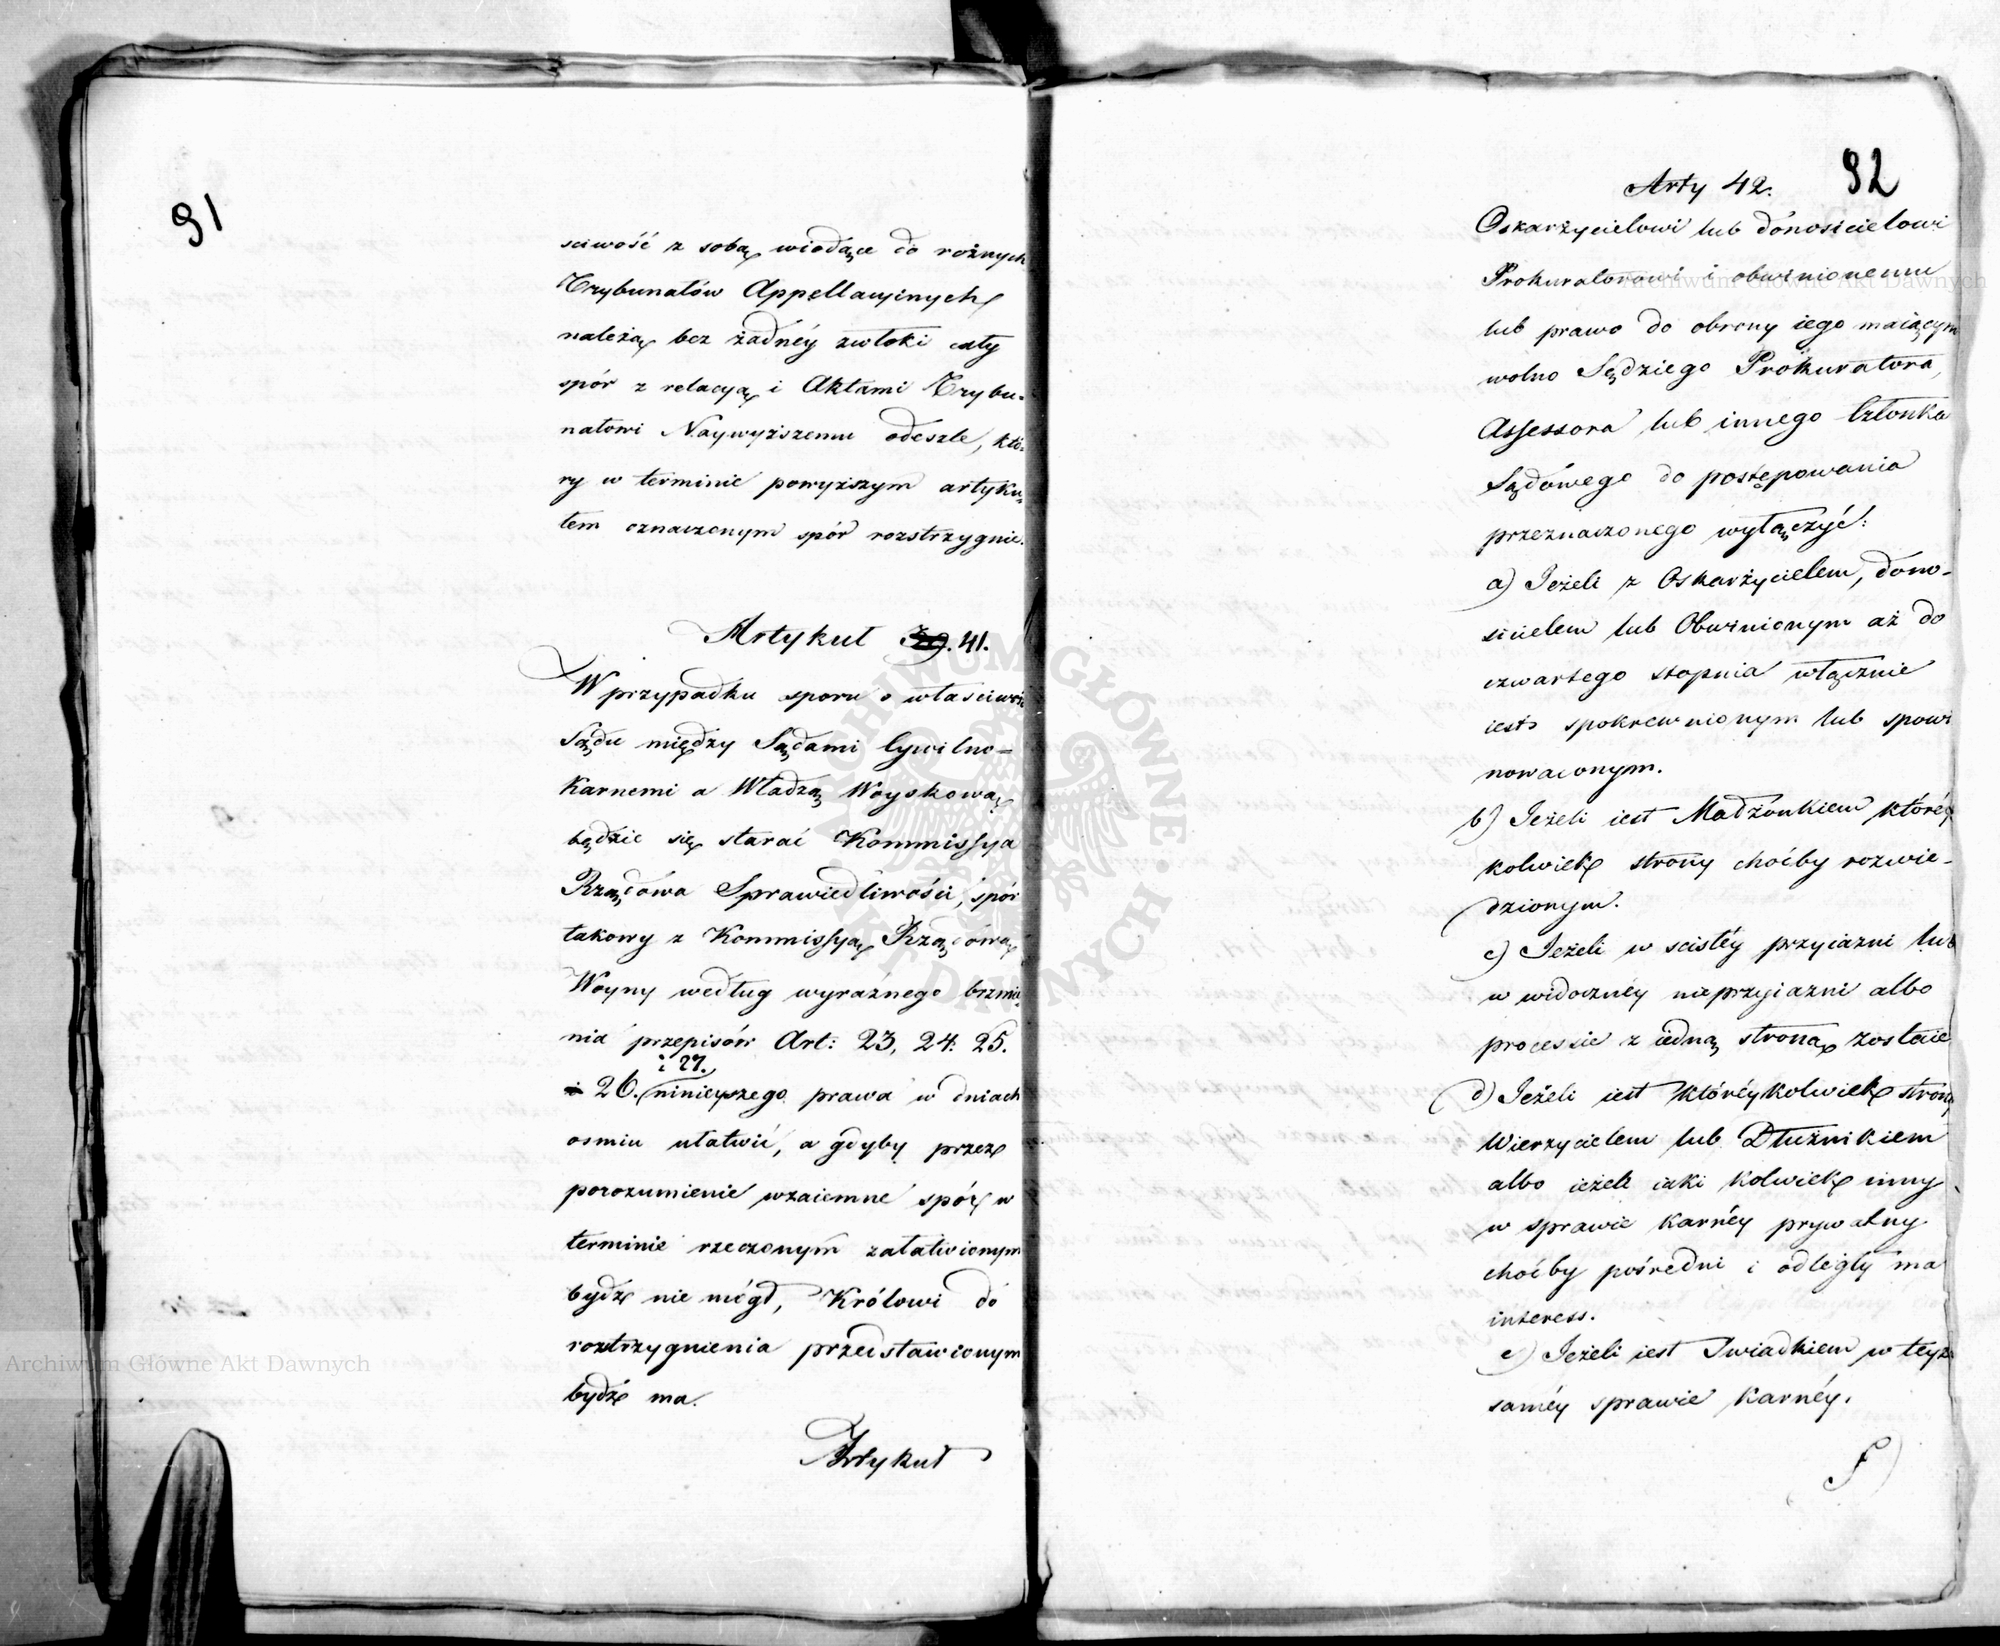 91
sciwość z sobą wiodące do rożnych
Trybunałów Appellacyinych
należą bez żadnéy zwłoki cały
spór z relacyą i Aktami Trybu-
nałowi Naywyższemu odeszle, któ-
ry w terminie powyższym artyku-
łem oznaczonym spór rozstrzygnie.
Artykuł 39. 41.
W przypadku sporu o własciwość
Sądu między Sądami Cywilno-
Karnemi a Władzą Woyskową
będzie się starać Kommissya
Rządowa Sprawiedliwości, spór
takowy z Kommissyą Rządową
Woyny według wyraźnego brzmie-
nia przepisów Art: 23, 24. 25.
i 27.
i 26. ninieyszego prawa w dniach
osmiu ułatwić, a gdyby przez
porozumienie wzaiemne spór w
terminie rzeczonym załatwionym
bydź nie mógł, Królowi do
roztrzygnienia przedstawionym
bydź ma.
Artykuł
92
Arty 42.
Oskarżycielowi lub donosicielowi
Prokuratorowi i obwinionemu
lub prawo do obrony iego maiącym
wolno Sędziego Prokuratora,
Assessora lub innego Członka
Sądowego do postępowania
przeznaczonego wyłączyć:
a) Jeżeli z Oskarżycielem, dono-
sicielem lub Obwinionym aż do
czwartego stopnia włącznie
iest spokrewnionym lub spowi
nowaconym.
b) Jeżeli iest Madżonkiem któréy
kolwiek strony choćby rozwie-
dzionym.
c) Jeżeli w scisłéy przyiazni lub
w widocznéy nieprzyiazni albo
processie z iedną stroną zostaie
d) Jeżeli iest któréykolwiek strony
Wierzycielem lub Dłużnikiem
albo ieżeli iaki kolwiek inny
w sprawie karnéy prywatny
choćby pośredni i odległy ma
interess.
e) Jeżeli iest Swiadkiem w teyże
saméy sprawie karnéy.
f)
Archiwum Główne Akt Dawnych
Archiwum Główne Akt Dawnych
ARCHIWUM GŁÓWNE AKT DAWNYCH